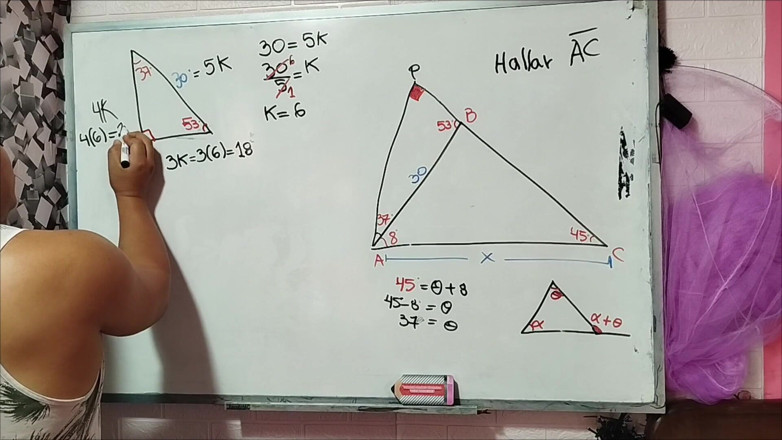 37
30° = 5K
4K
4(6)=2
53
3K=3(6)=18
30 = 5K
30 6
5 1 = K
K = 6
Hallar AC
P
B
53
30
37
8
45
A
x
C
45° = θ + 8
45-8 = θ
37 = θ
θ
α
α+θ